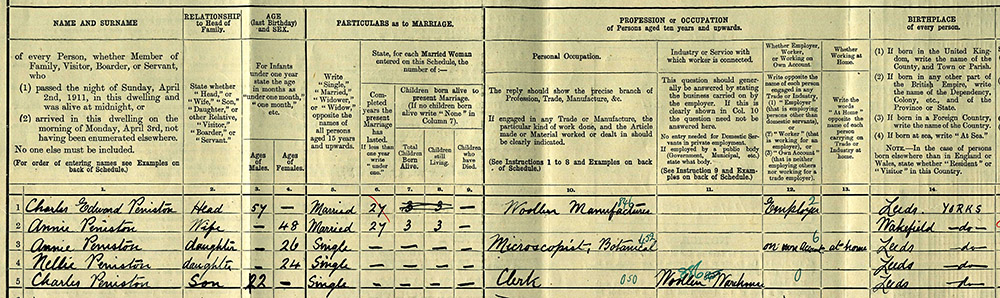 NAME AND SURNAME
of every Person, whether Member of
Family, Visitor, Boarder, or Servant,
who
(1) passed the night of Sunday, April
2nd, 1911, in this dwelling and
was alive at midnight, or
(2) arrived in this dwelling on the
morning of Monday, April 3rd, not
having been enumerated elsewhere.
No one else must be included.
(For order of entering names see Examples on
back of Schedule.)
RELATIONSHIP
to Head of
Family.
State whether
"Head," or
"Wife," "Son,"
"Daughter," or
other Relative,
"Visitor,"
"Boarder," or
"Servant."
AGE
(last Birthday)
and SEX.
For Infants
under one year
state the age
in months as
"under one month,"
"one month,"
etc.
Ages
of
Males.
Ages
of
Females.
PARTICULARS as to MARRIAGE.
Write
"Single,"
"Married,"
"Widower,"
or "Widow,"
opposite the
names of all
persons
aged 15 years
and upwards.
State, for each Married Woman
entered on this Schedule, the
number of :—
Com-
pleted
years the
present
Marriage
has
lasted.
If less
than
one year
write
"under
one."
Children born alive to
present Marriage.
(If no children born
alive write "None" in
Column 7).
Total
Children
Born
Alive.
Children
still
Living.
Children
who
have
Died.
PROFESSION or OCCUPATION
of Persons aged ten years and upwards.
Personal Occupation.
The reply should show the precise branch of
Profession, Trade, Manufacture, &c.
If engaged in any Trade or Manufacture, the
particular kind of work done, and the Article
made or Material worked or dealt in should
be clearly indicated.
(See Instructions 1 to 8 and Examples on back
of Schedule.)
Industry or Service with
which worker is connected.
This question should gener-
ally be answered by stating
the business carried on by
the employer. If this is
clearly shown in Col. 10
the question need not be
answered here.
No entry needed for Domestic Ser-
vants in private employment.
If employed by a public body
(Government, Municipal, etc.)
state what body.
(See Instruction 9 and Exam-
ples on back of Schedule.)
Whether Employer,
Worker, or
Working on Own
Account.
Write opposite the
name of each person
engaged in any
Trade or Industry,
(1) "Employer"
(that is employing
persons other than
domestic servants),
or
(2) "Worker" (that
is working for an
employer), or
(3) "Own Account"
(that is neither
employing others
nor working for a
trade employer).
Whether
Working at
Home.
Write the
words
"At Home"
opposite the
name of each
person
carrying on
Trade or
Industry
at home.
BIRTHPLACE
of every person.
(1) If born in the United King-
dom, write the name of the
County, and Town or Parish.
(2) If born in any other part of
the British Empire, write
the name of the Dependency,
Colony, etc., and of the
Province or State.
(3) If born in a Foreign Country,
write the name of the Country.
(4) If born at sea, write "At Sea."
NOTE.—In the case of persons
born elsewhere than in England or
Wales, state whether "Resident" or
"Visitor" in this Country.
1. 2. 3. 4. 5. 6. 7. 8. 9. 10. 11. 12. 13. 14.
1 Charles Edward Peniston Head 57 — Married 27 3 3 — Woollen Manufacturer Employer 2 Leeds YORKS
2 Annie Peniston Wife — 48 Married 27 3 3 — Wakefield —do—
3 Annie Peniston daughter — 26 Single — — — — Microscopist Botanical on own account 6 at home Leeds —do—
4 Nellie Peniston daughter — 24 Single — — — — Leeds —do—
5 Charles Peniston Son 22 — Single — — — — Clerk 050 Woollen Warehouse 0 Leeds —do—